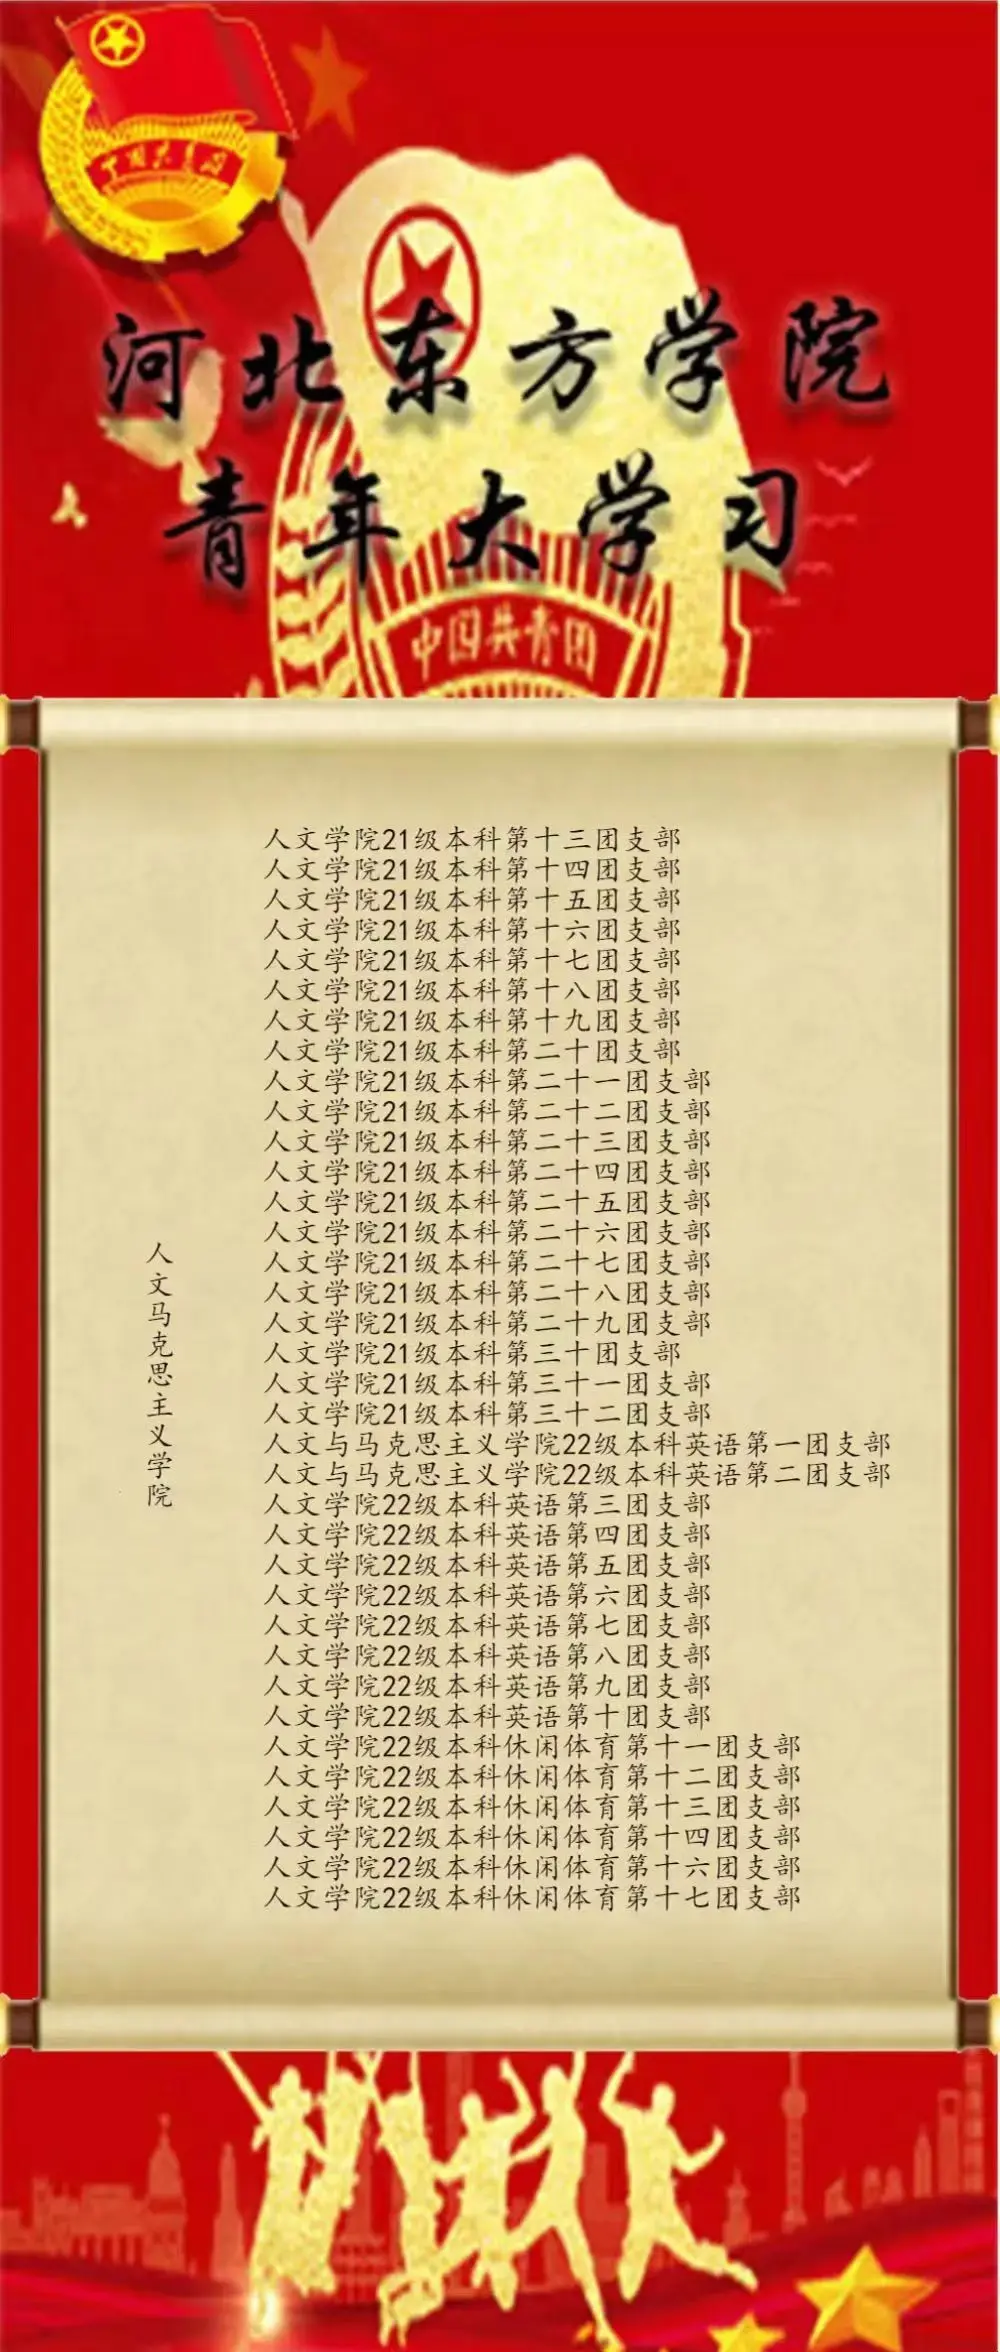 中国共青团
河北东方学院
青年大学习
中国共青团
人文马克思主义学院
人文学院21级本科第十三团支部
人文学院21级本科第十四团支部
人文学院21级本科第十五团支部
人文学院21级本科第十六团支部
人文学院21级本科第十七团支部
人文学院21级本科第十八团支部
人文学院21级本科第十九团支部
人文学院21级本科第二十团支部
人文学院21级本科第二十一团支部
人文学院21级本科第二十二团支部
人文学院21级本科第二十三团支部
人文学院21级本科第二十四团支部
人文学院21级本科第二十五团支部
人文学院21级本科第二十六团支部
人文学院21级本科第二十七团支部
人文学院21级本科第二十八团支部
人文学院21级本科第二十九团支部
人文学院21级本科第三十团支部
人文学院21级本科第三十一团支部
人文学院21级本科第三十二团支部
人文与马克思主义学院22级本科英语第一团支部
人文与马克思主义学院22级本科英语第二团支部
人文学院22级本科英语第三团支部
人文学院22级本科英语第四团支部
人文学院22级本科英语第五团支部
人文学院22级本科英语第六团支部
人文学院22级本科英语第七团支部
人文学院22级本科英语第八团支部
人文学院22级本科英语第九团支部
人文学院22级本科英语第十团支部
人文学院22级本科休闲体育第十一团支部
人文学院22级本科休闲体育第十二团支部
人文学院22级本科休闲体育第十三团支部
人文学院22级本科休闲体育第十四团支部
人文学院22级本科休闲体育第十六团支部
人文学院22级本科休闲体育第十七团支部